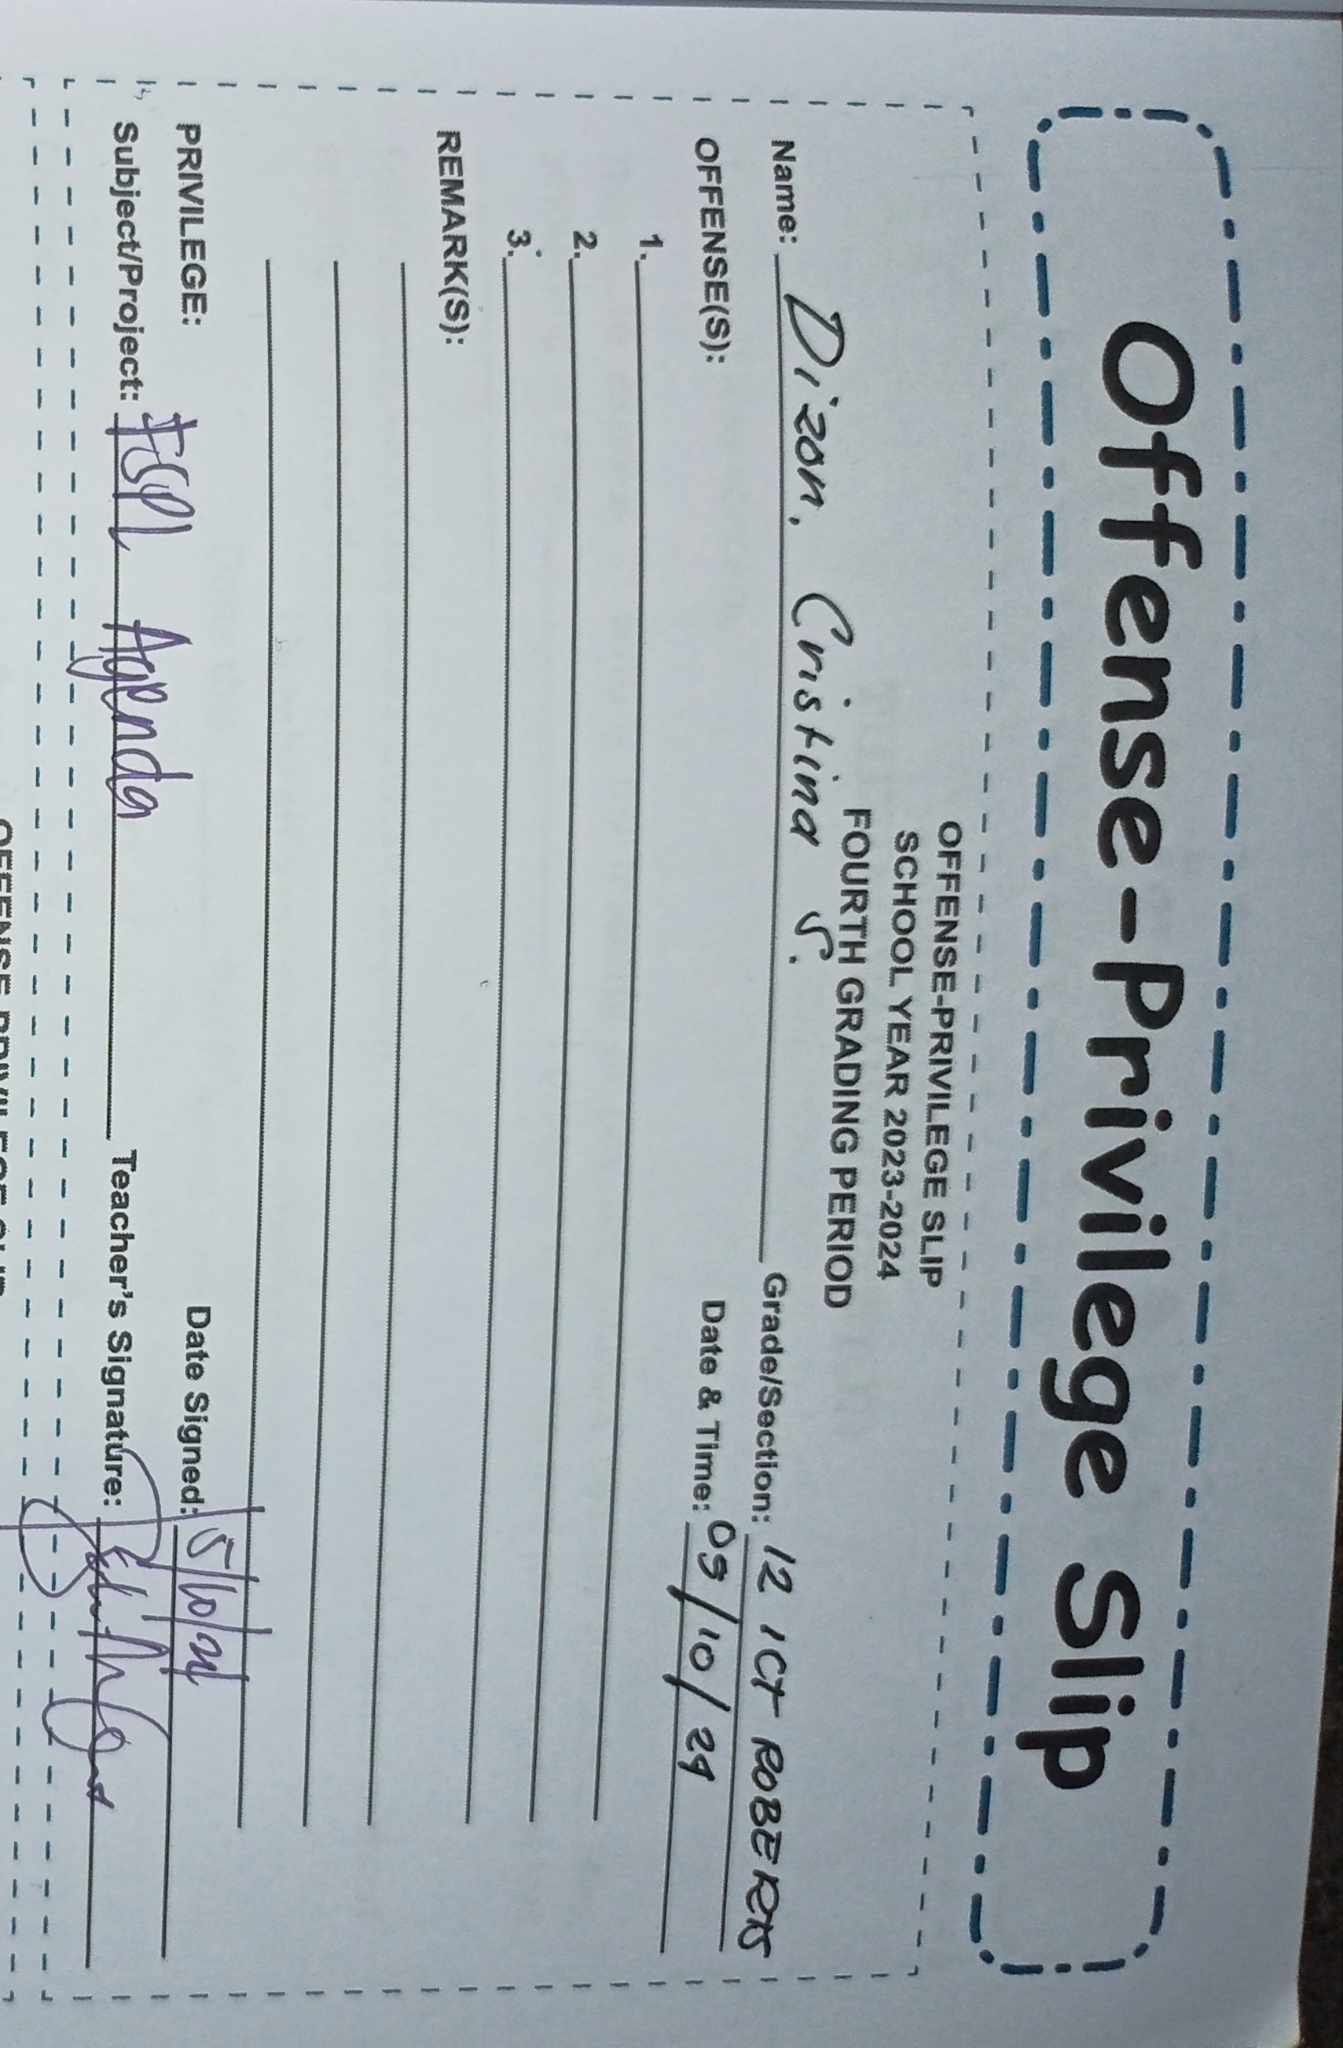 Offense-Privilege Slip
OFFENSE-PRIVILEGE SLIP
SCHOOL YEAR 2023-2024
FOURTH GRADING PERIOD
Name: Dizon, Cristina S. Grade/Section: 12 ICT ROBERTS
OFFENSE(S): Date & Time: 05/10/24
1.
2.
3.
REMARK(S):
PRIVILEGE: Date Signed: 5/10/24
Subject/Project: FSPL Agenda Teacher's Signature:
OFFENSE-PRIVILEGE SLIP